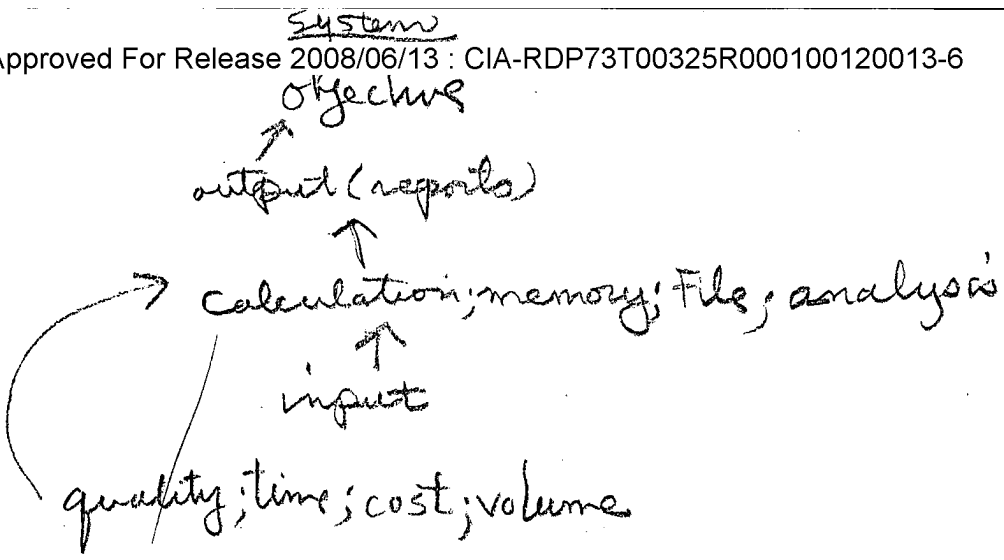 System
Approved For Release 2008/06/13 : CIA-RDP73T00325R000100120013-6
objective
output (reports)
calculation; memory; File; analysis
input
quality; time; cost; volume